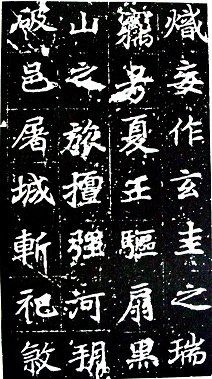 熾妄作玄圭之瑞
竊号夏王驅扇黑
山之旅擅強河朔
破邑屠城斬祀